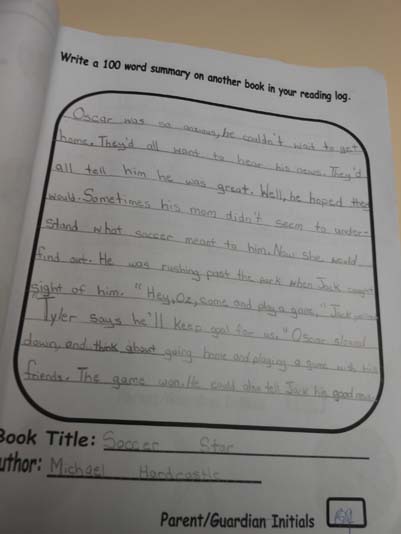 Write a 100 word summary on another book in your reading log.
Oscar was so anxious, he couldn't wait to get
home. They'd all want to hear his news. They'd
all tell him he was great. Well, he hoped they
would. Sometimes his mom didn't seem to under-
stand what soccer meant to him. Now she would
find out. He was rushing past the park when Jack caught
sight of him. "Hey, Oz, come and play a game," Jack
"Tyler says he'll keep goal for us." Oscar slowed
down, and think about going home and playing a game with his
friends. The game won. He could also tell Jack his good news.
Book Title: Soccer Star
uthor: Michael Hardcastle
Parent/Guardian Initials